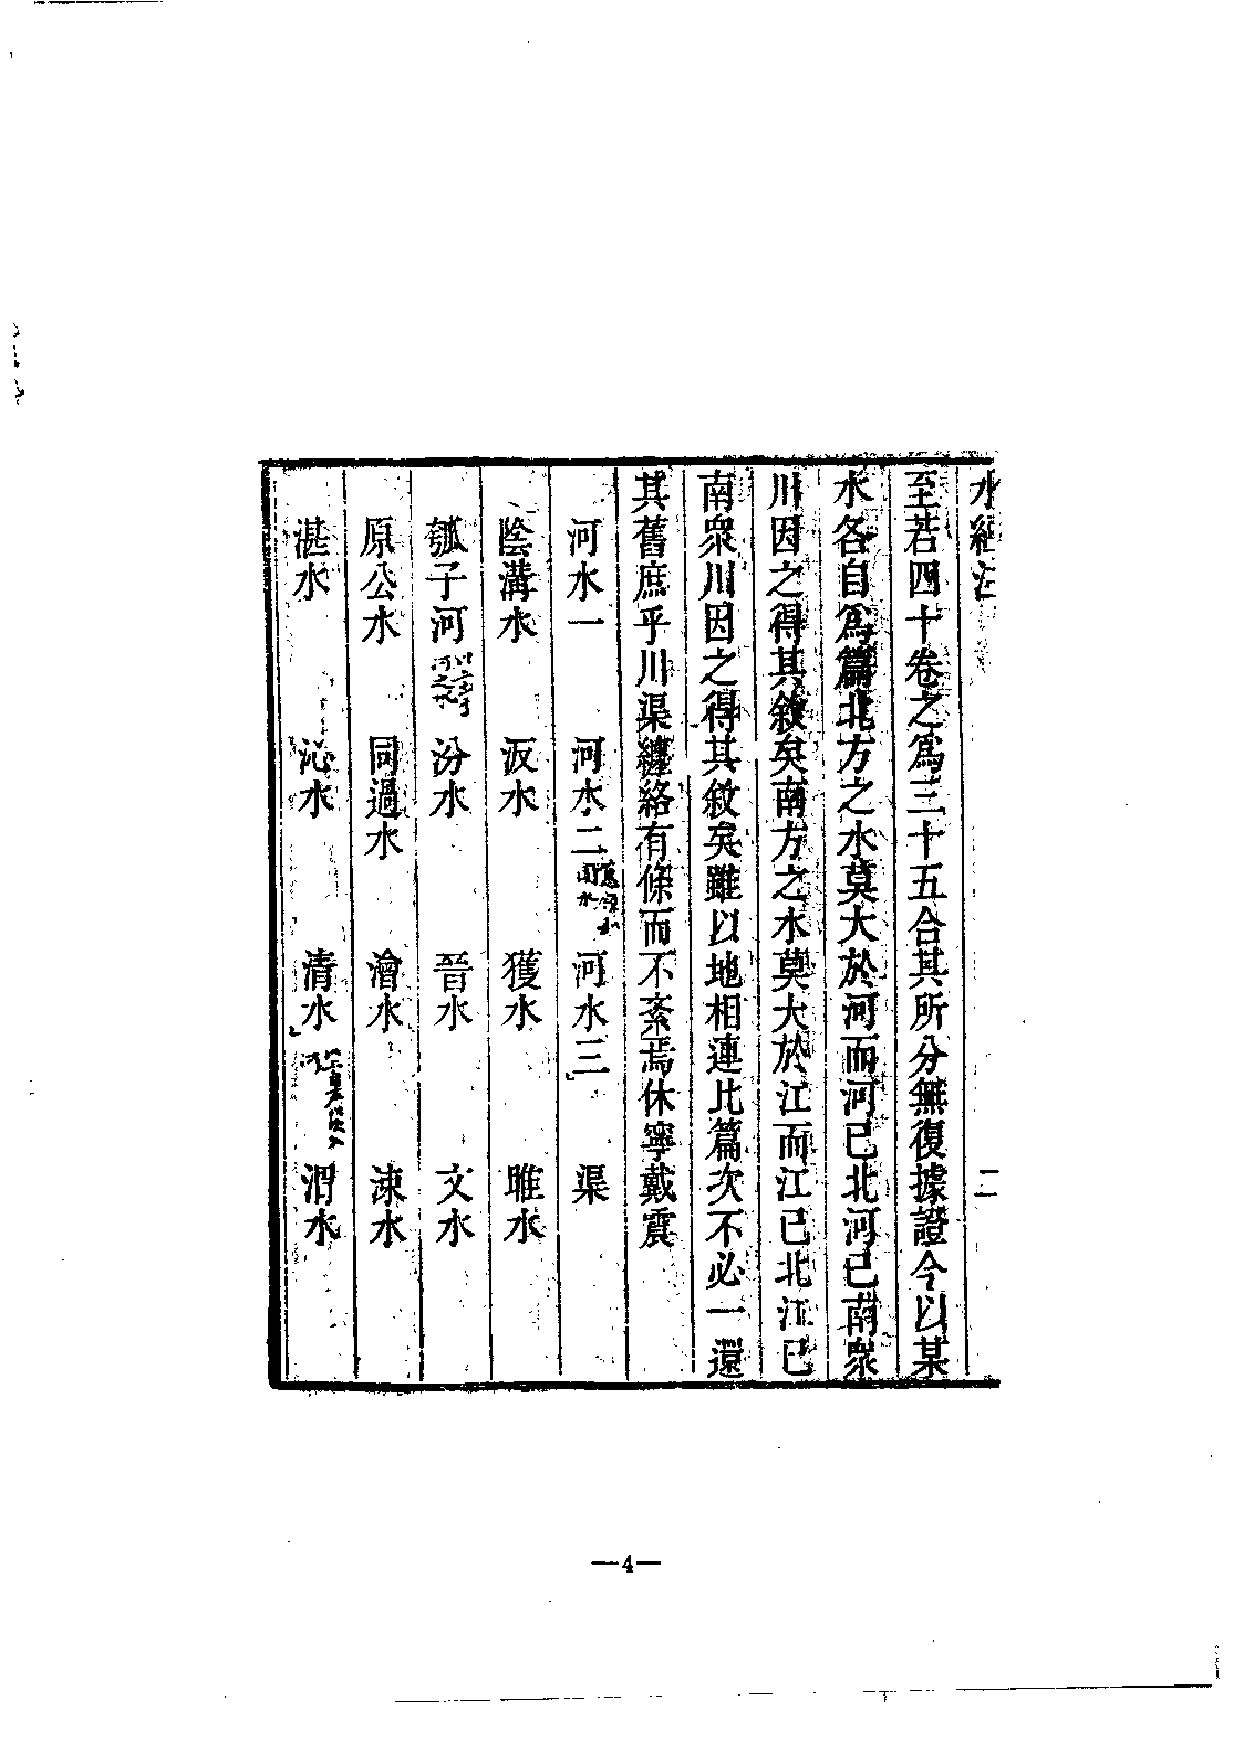 水經注 二
至若四十卷之爲三十五合其所分無復據證今以某
水各自爲篇北方之水莫大於河而河已北河已南衆
川因之得其敘矣南方之水莫大於江而江已北江已
南衆川因之得其敘矣雖以地相連比篇次不必一還
其舊庶乎川渠纏絡有條而不紊焉休寧戴震
河水一 河水二 河水三 渠
陰溝水 汳水 獲水 睢水
瓠子河 汾水 晉水 文水
原公水 同過水 澮水 涑水
湛水 沁水 清水 渭水
—4—